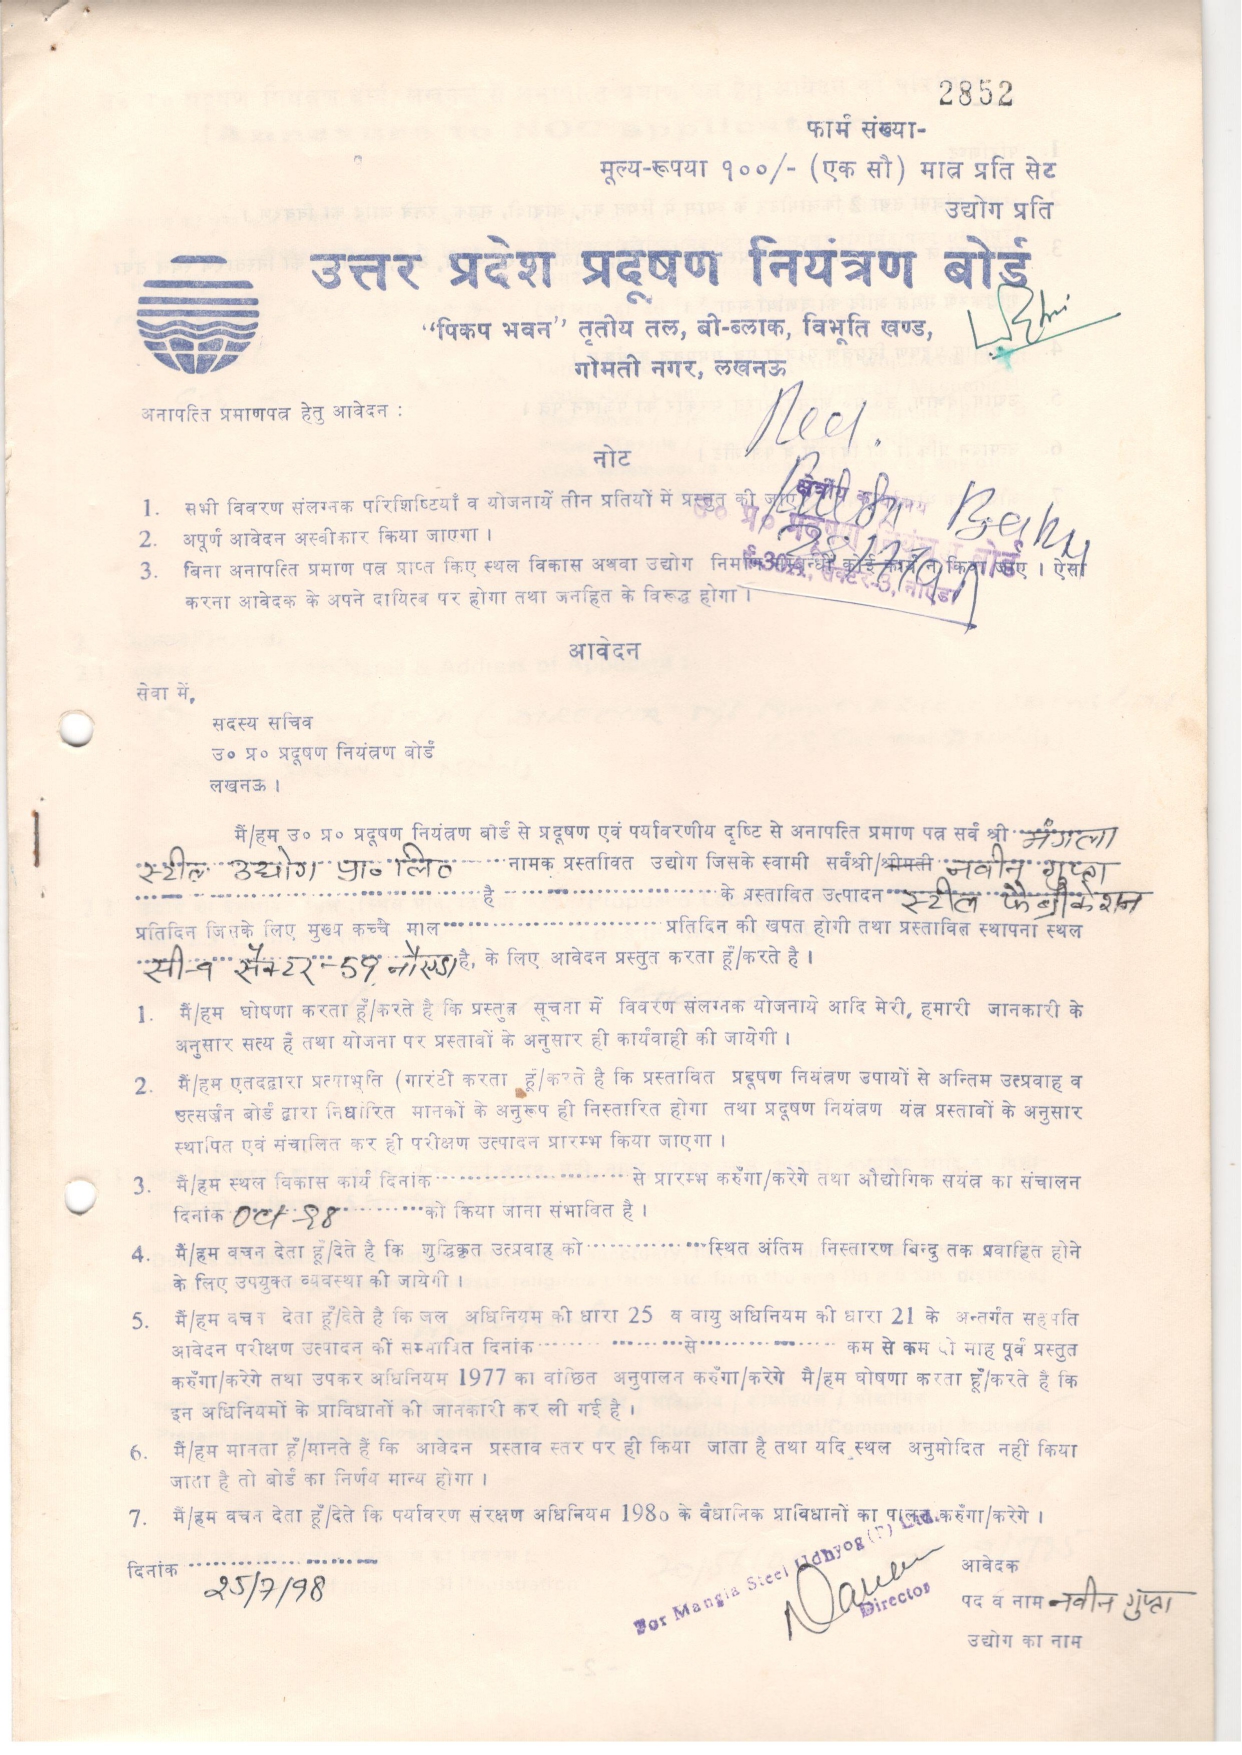 2852
फार्म संख्या-
मूल्य-रूपया १००/- (एक सौ) मात्र प्रति सेट
उद्योग प्रति
उत्तर प्रदेश प्रदूषण नियंत्रण बोर्ड
"पिकप भवन" तृतीय तल, बी-ब्लाक, विभूति खण्ड,
गोमती नगर, लखनऊ
अनापत्ति प्रमाणपत्र हेतु आवेदन :
नोट
1. सभी विवरण संलग्नक परिशिष्टियाँ व योजनायें तीन प्रतियों में प्रस्तुत की जाए
2. अपूर्ण आवेदन अस्वीकार किया जाएगा।
3. बिना अनापत्ति प्रमाण पत्र प्राप्त किए स्थल विकास अथवा उद्योग निर्माण सम्बन्धी कोई कार्य न किया जाए। ऐसा
करना आवेदक के अपने दायित्व पर होगा तथा जनहित के विरूद्ध होगा।
उ० प्र० प्रदूषण नियंत्रण बोर्ड
सेक्टर-3, नोएडा
आवेदन
सेवा में,
सदस्य सचिव
उ० प्र० प्रदूषण नियंत्रण बोर्ड
लखनऊ।
मैं/हम उ० प्र० प्रदूषण नियंत्रण बोर्ड से प्रदूषण एवं पर्यावरणीय दृष्टि से अनापत्ति प्रमाण पत्र सर्व श्री मंगला
स्टील उद्योग प्रा० लि० नामक प्रस्तावित उद्योग जिसके स्वामी सर्वश्री/श्रीमती नवीन गुप्ता
है के प्रस्तावित उत्पादन स्टील फैब्रीकेशन
प्रतिदिन जिसके लिए मुख्य कच्चे माल प्रतिदिन की खपत होगी तथा प्रस्तावित स्थापना स्थल
सैक्टर-59, नौएडा है, के लिए आवेदन प्रस्तुत करता हूँ/करते है।
1. मैं/हम घोषणा करता हूँ/करते है कि प्रस्तुत सूचना में विवरण संलग्नक योजनाये आदि मेरी, हमारी जानकारी के
अनुसार सत्य हैं तथा योजना पर प्रस्तावों के अनुसार ही कार्यवाही की जायेगी।
2. मैं/हम एतदद्वारा प्रत्याभूति (गारंटी करता हूँ/करते है कि प्रस्तावित प्रदूषण नियंत्रण उपायों से अन्तिम उत्प्रवाह व
उत्सर्जन बोर्ड द्वारा निर्धारित मानकों के अनुरूप ही निस्तारित होगा तथा प्रदूषण नियंत्रण यंत्र प्रस्तावों के अनुसार
स्थापित एवं संचालित कर ही परीक्षण उत्पादन प्रारम्भ किया जाएगा।
3. मैं/हम स्थल विकास कार्य दिनांक से प्रारम्भ करुँगा/करेगे तथा औद्योगिक सयंत्र का संचालन
दिनांक Oct-98 को किया जाना संभावित है।
4. मैं/हम वचन देता हूँ/देते है कि शुद्धिकृत उत्प्रवाह को स्थित अंतिम निस्तारण बिन्दु तक प्रवाहित होने
के लिए उपयुक्त व्यवस्था की जायेगी।
5. मैं/हम वचन देता हूँ/देते है कि जल अधिनियम की धारा 25 व वायु अधिनियम की धारा 21 के अन्तर्गत सहमति
आवेदन परीक्षण उत्पादन की सम्भावित दिनांक से कम से कम दो माह पूर्व प्रस्तुत
करुँगा/करेगे तथा उपकर अधिनियम 1977 का वांछित अनुपालन करुँगा/करेगे मै/हम घोषणा करता हूँ/करते है कि
इन अधिनियमों के प्राविधानों की जानकारी कर ली गई है।
6. मैं/हम मानता हूँ/मानते हैं कि आवेदन प्रस्ताव स्तर पर ही किया जाता है तथा यदि स्थल अनुमोदित नहीं किया
जाता है तो बोर्ड का निर्णय मान्य होगा।
7. मैं/हम वचन देता हूँ/देते कि पर्यावरण संरक्षण अधिनियम 1980 के वैधानिक प्राविधानों का पालन करुँगा/करेगे।
दिनांक 25/7/98
For Mangla Steel Udhyog (P) Ltd.
Director
आवेदक
पद व नाम नवीन गुप्ता
उद्योग का नाम